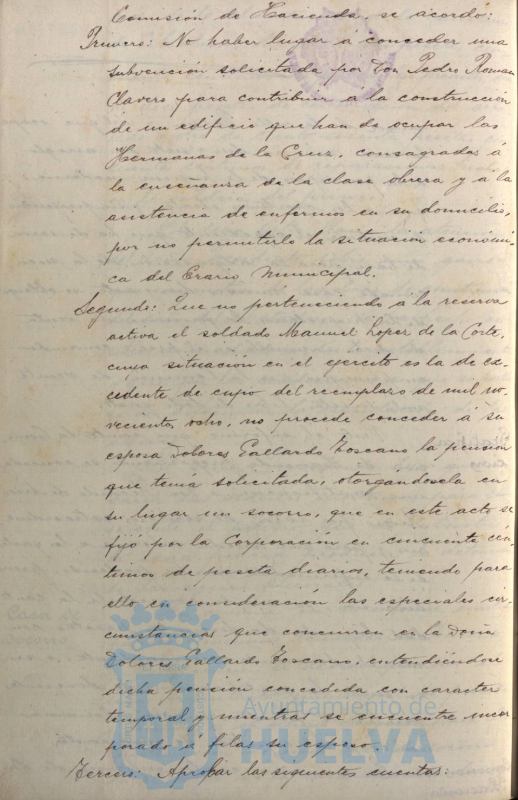 Comisión de Hacienda, se acordó:
Primero: No haber lugar á conceder una
subvención solicitada por Don Pedro Roman
Clavero para contribuir a la construcción
de un edificio que han de ocupar las
Hermanas de la Cruz, consagradas á
la enseñanza de la clase obrera y á la
asistencia de enfermos en su domicilio,
por no permitirlo la situación económi-
ca del Erario Municipal.
Segundo: Que no perteneciendo á la reserva
activa el soldado Manuel Lopez de la Corte,
cuya situación en el ejército es la de ex-
cedente de cupo del reemplazo de mil no-
vecientos ocho, no procede conceder á su
esposa Dolores Gallardo Toscano la pensión
que tenía solicitada, otorgándosela en
su lugar un socorro, que en este acto se
fijó por la Corporación en cincuenta cén-
timos de peseta diarios, teniendo para
ello en consideración las especiales cir-
cunstancias que concurren en la Doña
Dolores Gallardo Toscano, entendiéndose
dicha pensión concedida con caracter
temporal y mientras se encuentre incor-
porado á filas su esposo.
Tercero: Aprobar las siguientes cuentas:
Ayuntamiento de
HUELVA